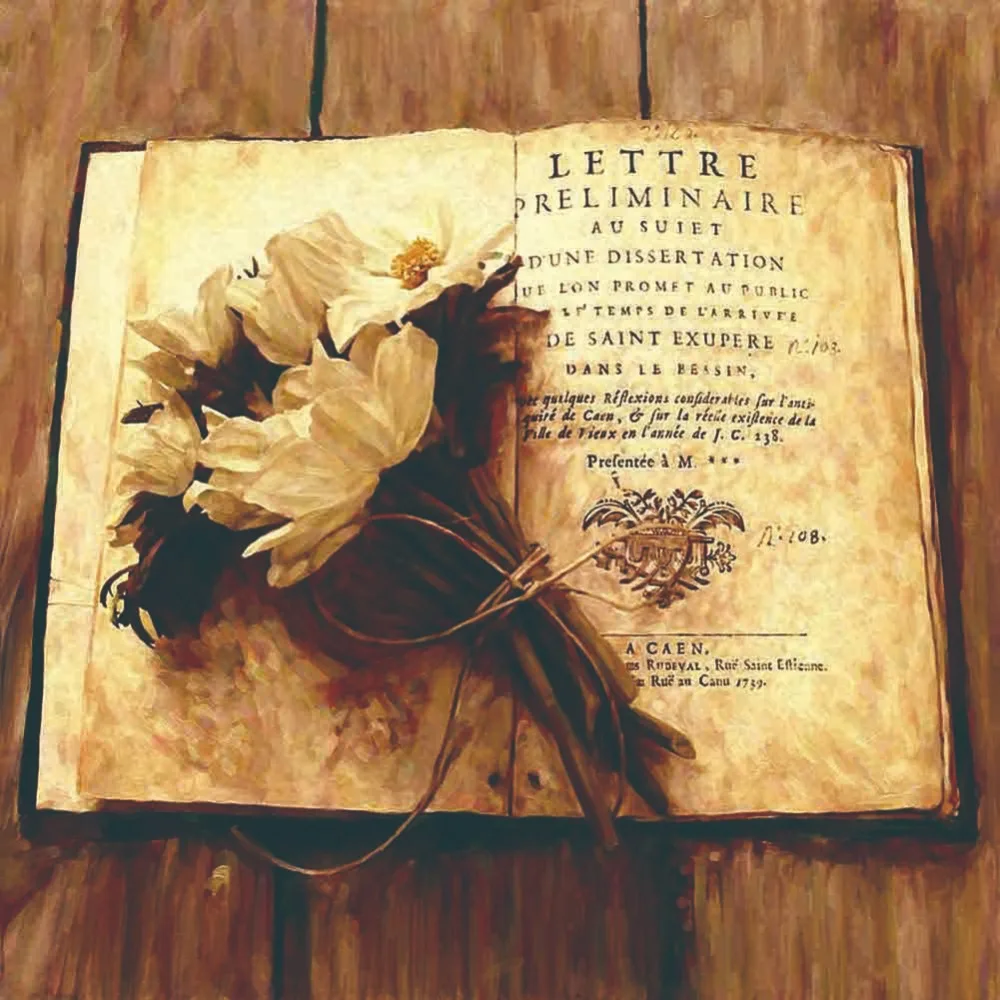 LETTRE
PRELIMINAIRE
AU SUIET
D'UNE DISSERTATION
UE L'ON PROMET AU PUBLIC
TEMPS DE L'ARRIVEE
DE SAINT EXUPERE n.º 103.
DANS LE BESSIN,
quelques Réflexions considerables sur l'anti-
quité de Caen, & sur la réelle existence de la
Ville de Vieux en l'année de J. C. 238.
Presentée à M. ***
N.º 108.
A CAEN,
RUDEVAL, Ruë Saint Estienne.
Ruë au Canu 1739.